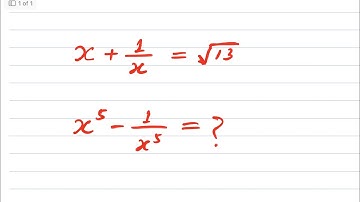 1 of 1
x + 1/x = √13
x⁵ − 1/x⁵ = ?